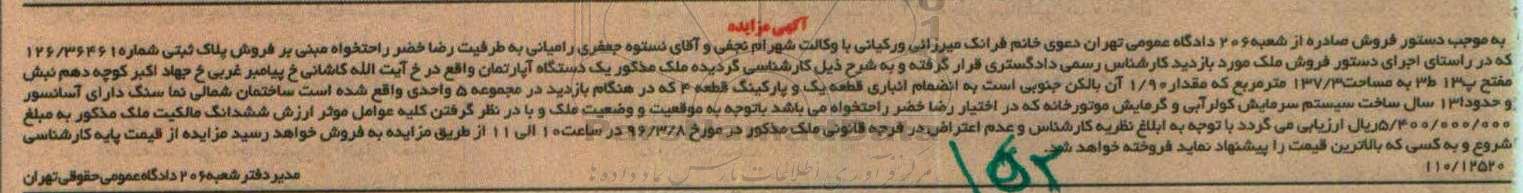 آگهی مزایده
به موجب دستور فروش صادره از شعبه ۲۰۶ دادگاه عمومی تهران دعوی خانم فرانک میرزائی ورکیانی با وکالت شهرام نجفی و آقای نستوه جعفری رامیانی به طرفیت رضا خضر راحتخواه مبنی بر فروش پلاک ثبتی شماره ۱۲۶/۳۶۴۶۱
که در راستای اجرای دستور فروش ملک مورد بازدید کارشناس رسمی دادگستری قرار گرفته و به شرح ذیل کارشناسی گردیده ملک مذکور یک دستگاه آپارتمان واقع در خ آیت الله کاشانی خ پیامبر غربی خ جهاد اکبر کوچه دهم نبش
مفتح پ۱۳ ط۳ به مساحت ۱۳۷/۳ مترمربع که مقدار ۱/۹۰ آن بالکن جنوبی است به انضمام انباری قطعه یک و پارکینگ قطعه ۴ که در هنگام بازدید در مجموعه ۵ واحدی واقع شده است ساختمان شمالی نما سنگ دارای آسانسور
و حدودا ۱۳ سال ساخت سیستم سرمایش کولرآبی و گرمایش موتورخانه که در اختیار رضا خضر راحتخواه می باشد باتوجه به موقعیت و وضعیت ملک و با در نظر گرفتن کلیه عوامل موثر ارزش ششدانگ مالکیت ملک مذکور به مبلغ
۵/۴۰۰/۰۰۰/۰۰۰ ریال ارزیابی می گردد با توجه به ابلاغ نظریه کارشناس و عدم اعتراض در فرجه قانونی ملک مذکور در مورخ ۹۶/۳/۸ در ساعت ۱۰ الی ۱۱ از طریق مزایده به فروش خواهد رسید مزایده از قیمت پایه کارشناسی
شروع و به کسی که بالاترین قیمت را پیشنهاد نماید فروخته خواهد شد.
۱۱۰/۱۲۵۲۰
مدیر دفتر شعبه ۲۰۶ دادگاه عمومی حقوقی تهران
مرکز فرآوری اطلاعات پارس نماد داده ها